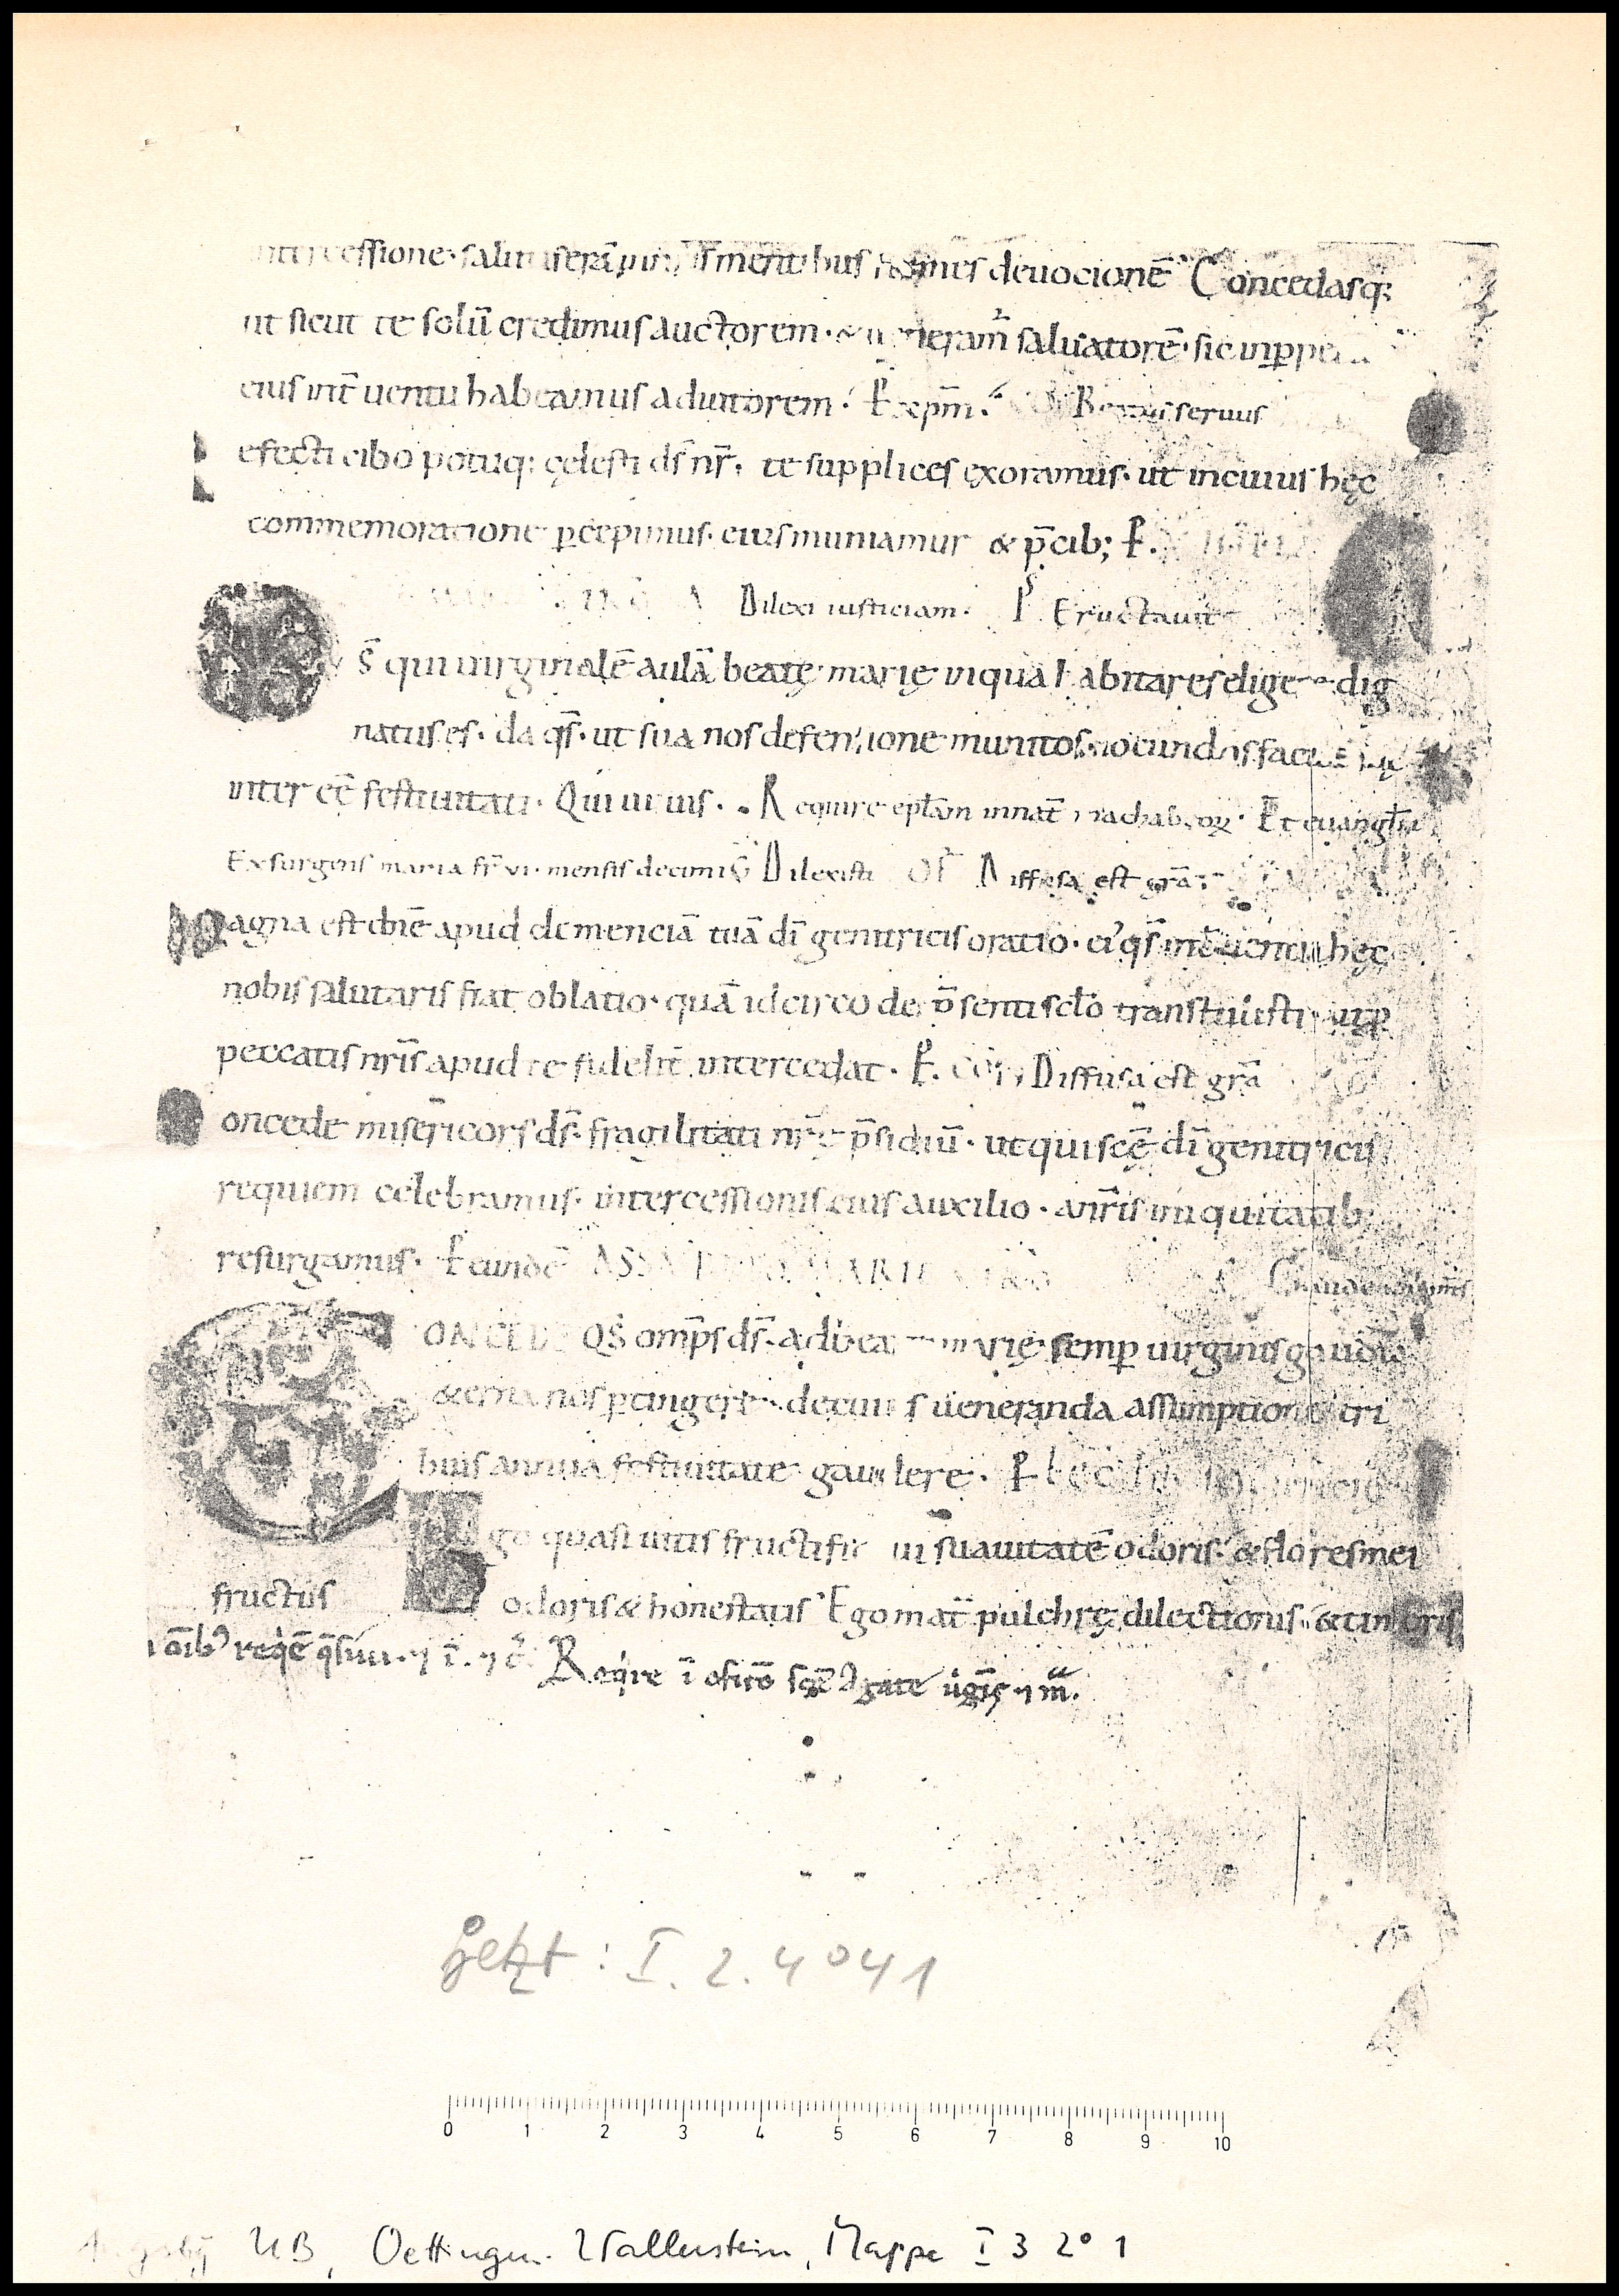 intercessione salutiferā in nr̄is mentibus firmes deuocionē Concedasq;
ut sicut te solū credimus auctorem · & ueneramr̄ saluatorē · sic inꝑpe
eius int̄uentu habeamus adiutorem · P̲ eepm̄. Beatus seruus
efecti cibo potuq; cęlesti ds̄ nr̄, te supplices exoramus · ut in cuius hęc
commemoratione ꝑcepimus · eius muniamur & p̄cib; P̲.
Dilexi iusticiam · P̲ Eructauit
s̄ qui uirginalē aulā beatę marię in qua habitares eligere dig
natus es · da qs̄ · ut sua nos defensione munitos · iocundos faci suę
inter eē festiuitati · Qui uiuis · Require epl̄am in nat̄ Et euangl̄iū
Exsurgens maria fr̄ vi · mensis decimi G Dilexisti OF Diffusa est gr̄a
agna est dn̄e apud clemenciā tuā dī genitricis oratio · ei' qs̄ int̄uentu hęc
nobis salutaris fiat oblatio · quā idcirco de p̄senti sc̄lo transtulisti · ut ꝓ
peccatis nr̄is apud te fidelit̄ intercedat · P̲. COM Diffusa est gr̄a
oncede misericors ds̄ · fragilitati nr̄ę p̄sidiū · ut qui sc̄ę dī genitricis
requiem celebramus · intercessionis eius auxilio · a nr̄is iniquitatib;
resurgamus · P̲ eundē ASSA MARIE Gaudeam
ONCEDE QS̄ om̄ps ds̄ · ad bea marię semꝑ uirginis gaudia
&erna nos ꝑtingere · de cuius ueneranda assumptione tri
buis annua festiuitate gaudere · P̲
go quasi uitis fructifi in suauitatē odoris · & flores mei
fructus odoris & honestatis Ego mat̄ pulchrę dilectionis · & timoris
oīb' reqē q̄siui · ⁊ ī · ⁊ c̄ · Reqire ī oficio sc̄ę Agate uīgīs ⁊ m̄.
Jetzt : I. 2. 4° 41
0 1 2 3 4 5 6 7 8 9 10
UB, Oettingen-Wallerstein, Mappe I 3 2° 1